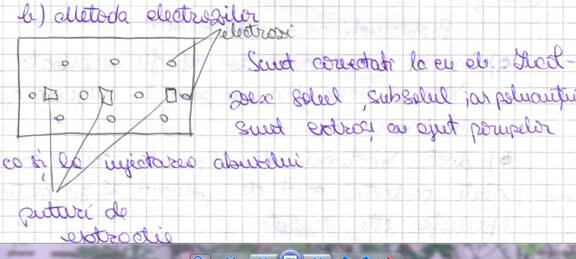 b) Metoda electrozilor
electrozi
Sunt conectati la en el. Încăl-
zex solul, subsolul iar poluanții
sunt extrași cu ajut pompelor
ca si la injectarea aburului.
puturi de
extractie